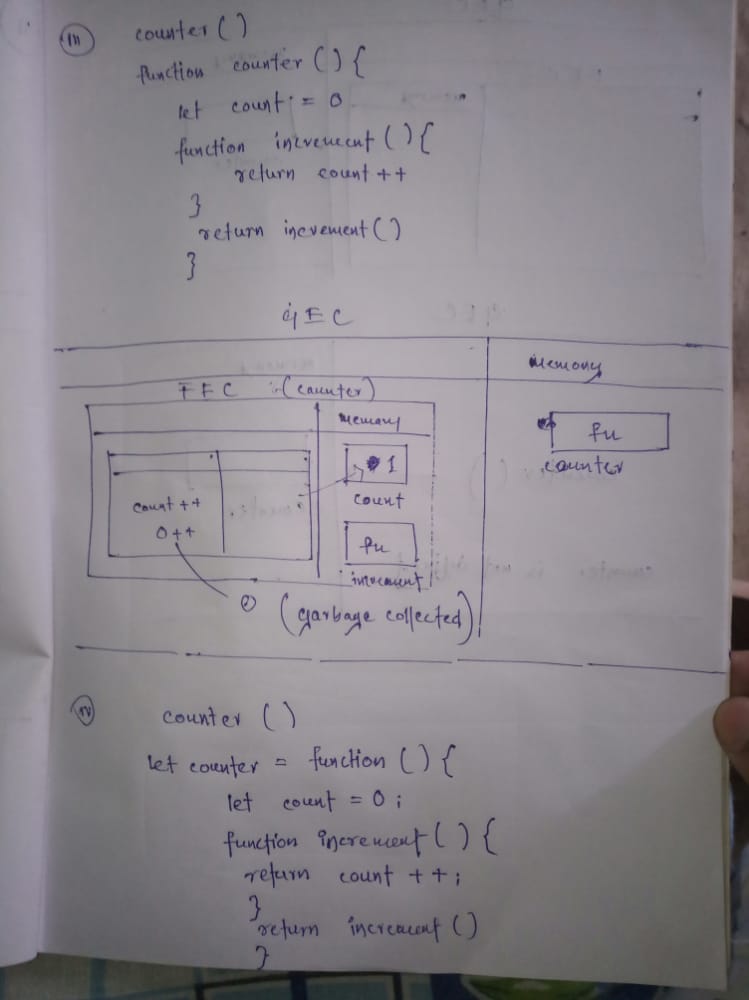 III
counter ()
function counter () {
let count = 0
function increment () {
return count ++
}
return increment ()
}
GEC
Memory
FEC (counter)
Memory
fu
counter
1
count
count ++
0 ++
fu
increment
0 (garbage collected)
IV
counter ()
let counter = function () {
let count = 0 ;
function increment () {
return count ++ ;
}
return increment ()
}